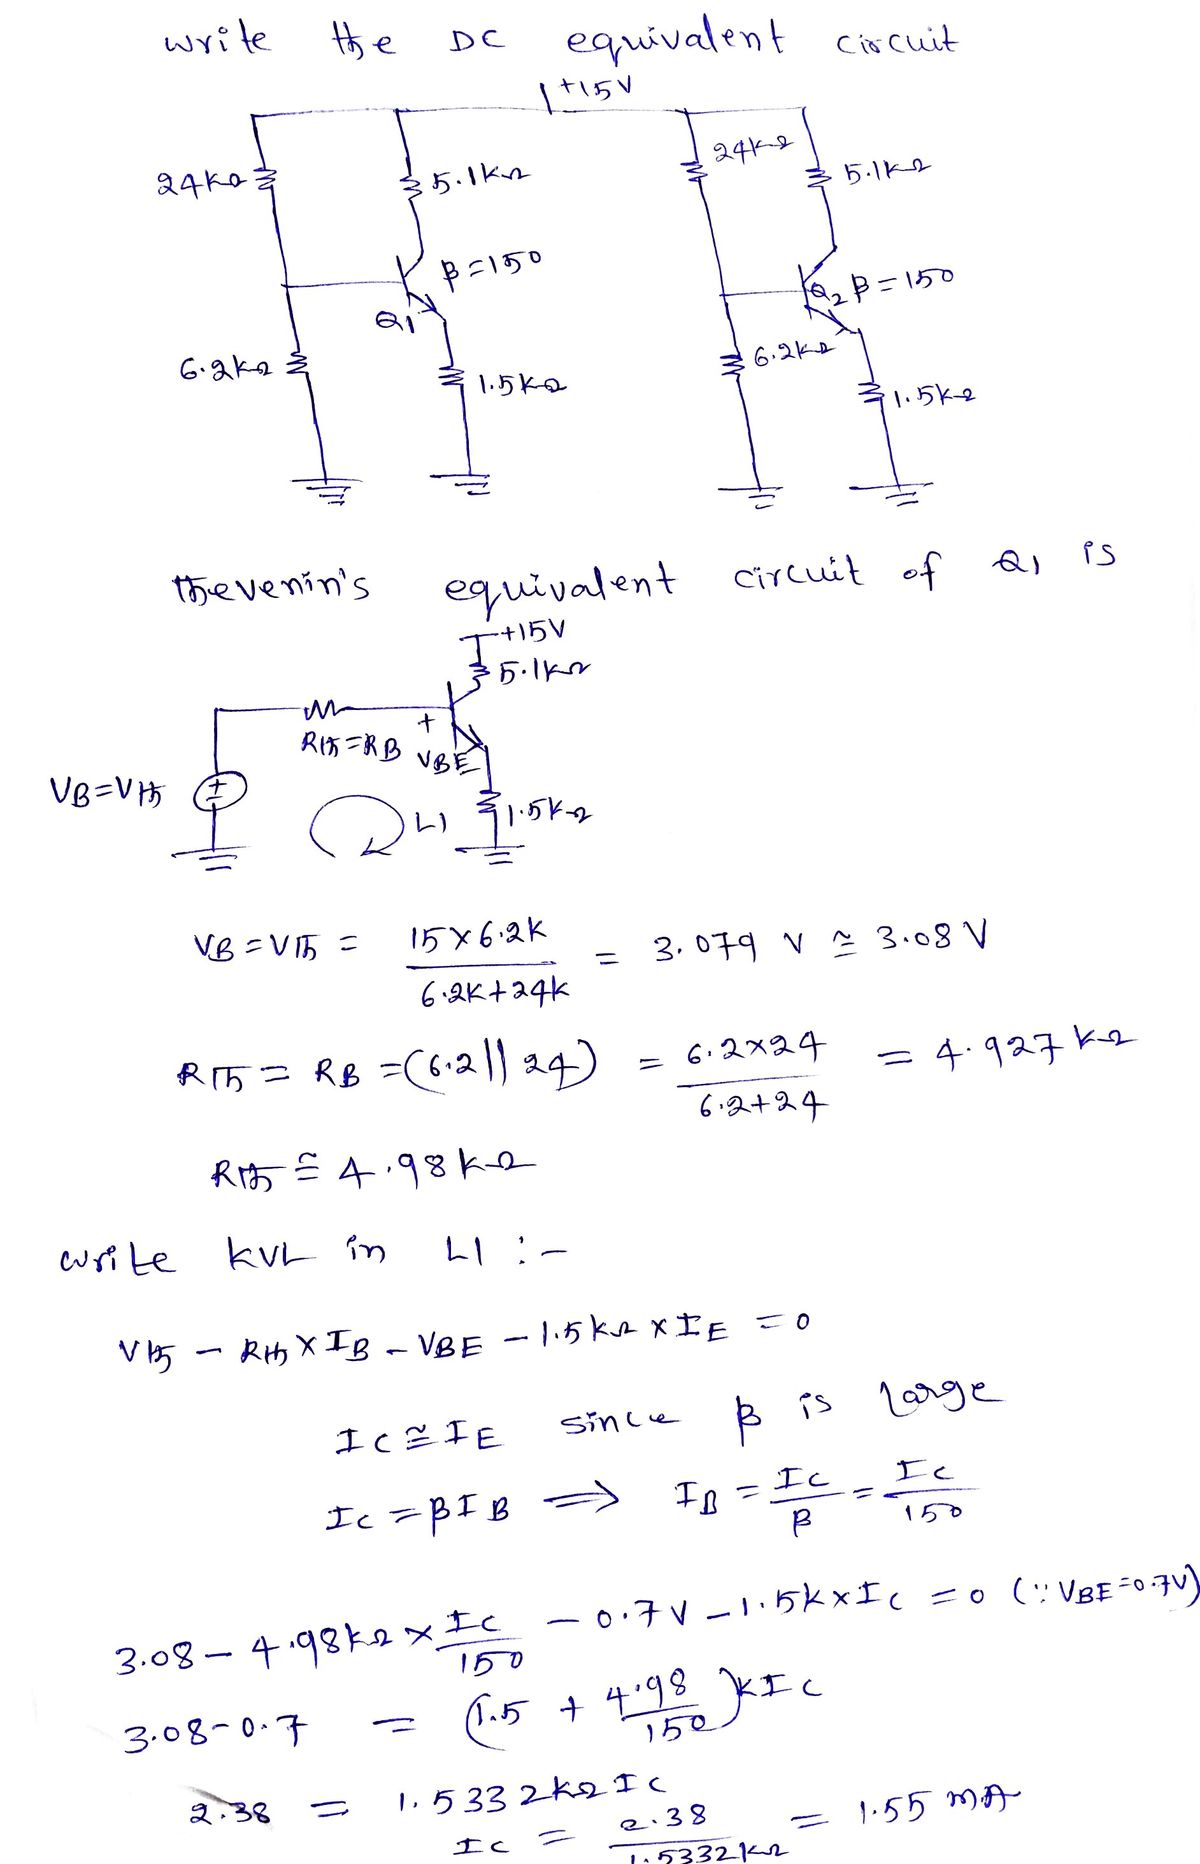 write the DC equivalent circuit
+15V
24kΩ
5.1kΩ
β=150
Q1
6.2kΩ
1.5kΩ
24kΩ
5.1kΩ
Q2 β=150
6.2kΩ
1.5kΩ
thevenin's equivalent circuit of Q1 is
+15V
5.1kΩ
Rth=RB
+
VBE
VB=Vth
+
L1
1.5kΩ
VB=Vth = 15×6.2k / 6.2k+24k = 3.079 V ≅ 3.08 V
Rth = RB =(6.2||24) = 6.2×24 / 6.2+24 = 4.927 kΩ
Rth ≅ 4.98kΩ
write KVL in L1 :-
Vth - Rth × IB - VBE - 1.5kΩ × IE = 0
IC ≅ IE since β is large
IC = βIB ⟹ IB = IC/β = IC/150
3.08 - 4.98kΩ × IC/150 - 0.7V - 1.5k×IC = 0 (∵ VBE=0.7V)
3.08-0.7 = (1.5 + 4.98/150)kIC
2.38 = 1.5332kΩ IC
IC = 2.38 / 1.5332kΩ = 1.55 mA